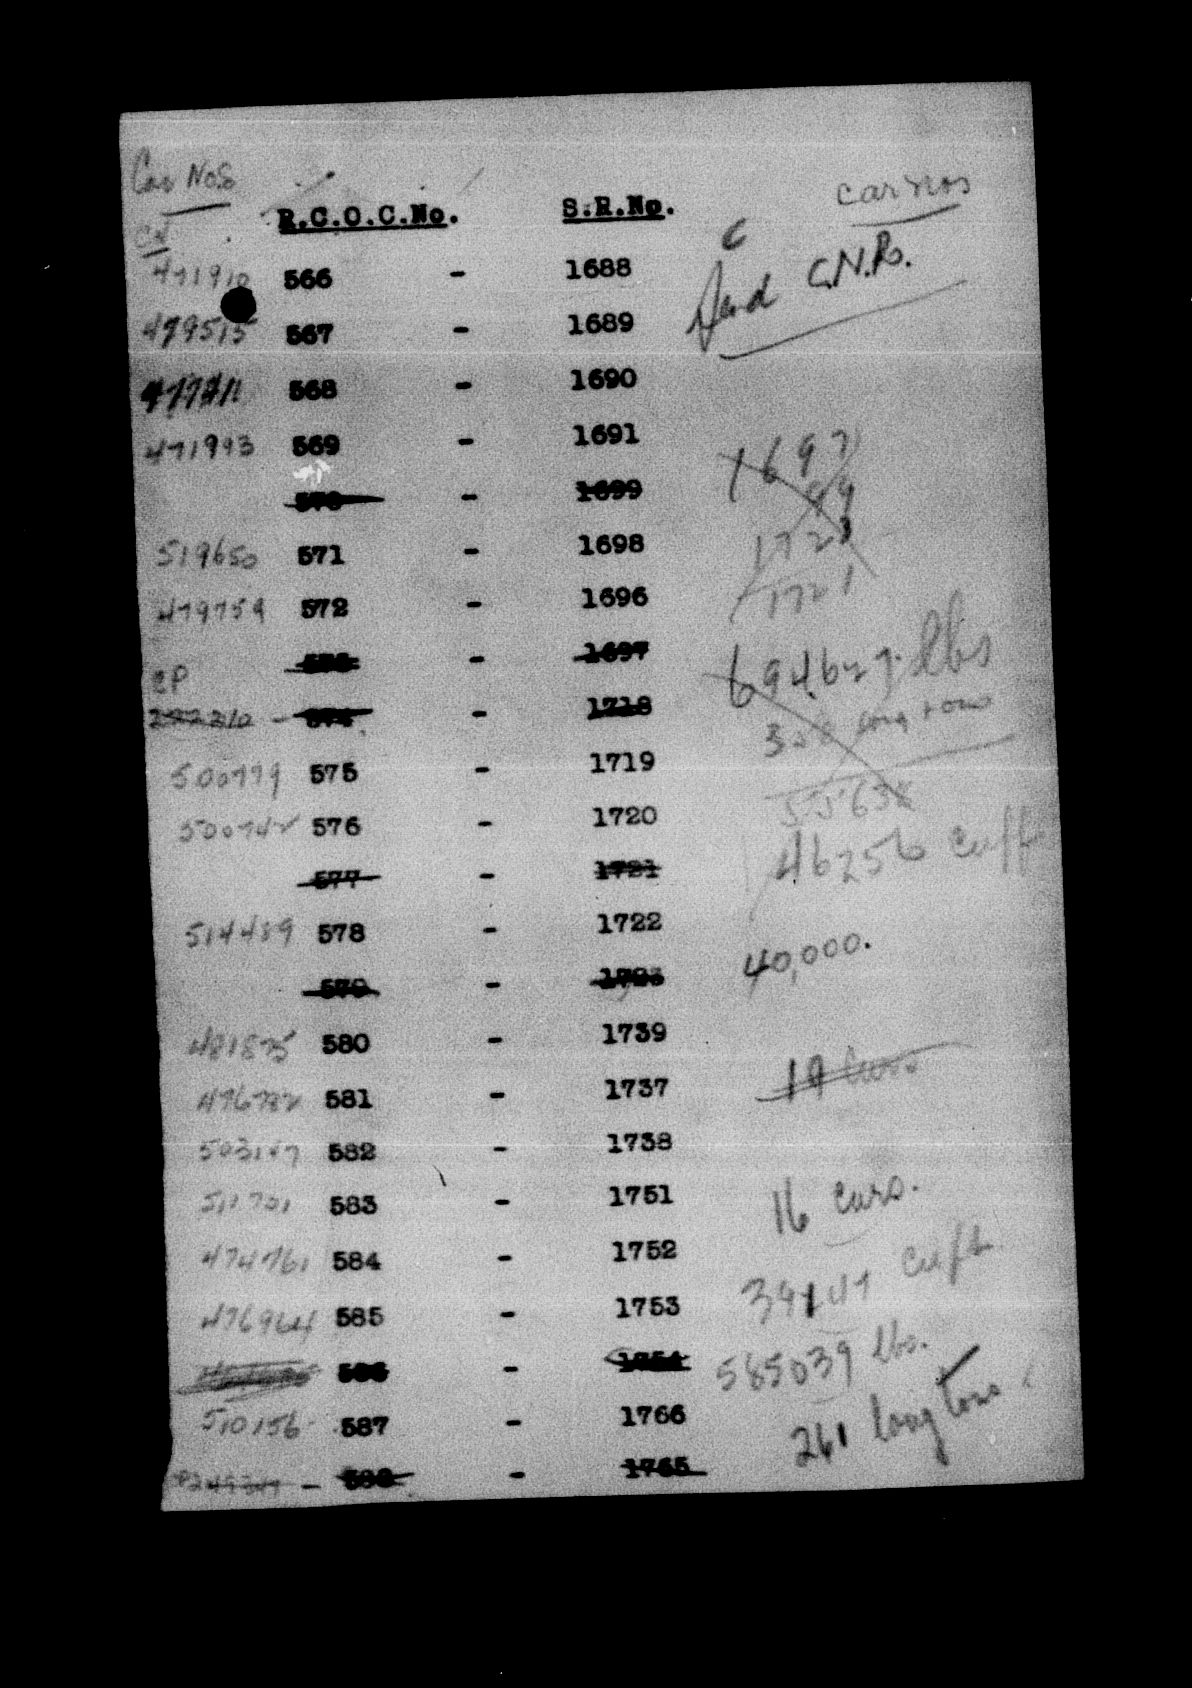 Car Nos
car nos
R.C.O.C.No. S.R.No.
CN
C
Send C.N.R.
471910 566 - 1688
479515 567 - 1689
568 - 1690
471993 569 - 1691
1697
570 - 1699
99
1723
519650 571 - 1698
1721
479759 572 - 1696
- 1697
694627 lbs
CP
292210 - 574 - 1718
long tons
500779 575 - 1719
55638
500742 576 - 1720
46256 cu ft
577 - 1721
514489 578 - 1722
40,000.
579 - 1723
481875 580 - 1739
19 Cars
476782 581 - 1737
503147 582 - 1738
511701 583 - 1751
16 Cars.
474761 584 - 1752
cu ft
476964 585 - 1753
585039 lbs.
586 - 1754
510156 587 - 1766
261 long tons
- 588 - 1765